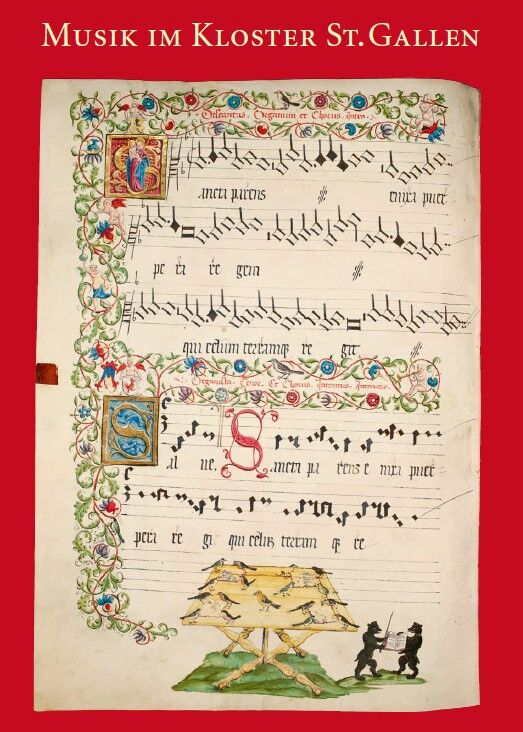 MUSIK IM KLOSTER ST. GALLEN
Organum et Chorus
ancta parens enixa puer
pe ra re gem
qui celum terramq re git
Organista. Tenor. Et Chorus.
S al ve. Sancta pa rens e nixa puer
pera re gi qui celum terram q re